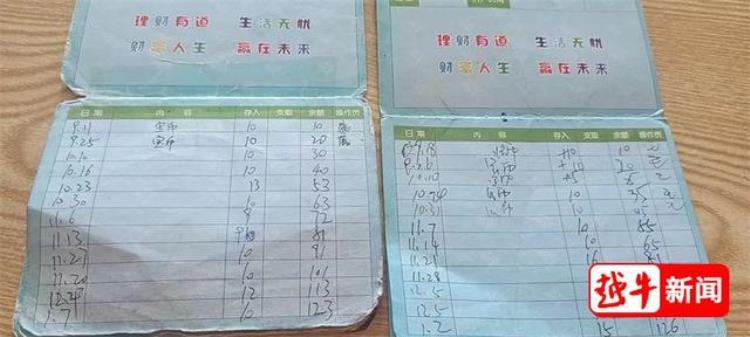 理财有道 生活无忧
财富人生 赢在未来
日期 内容 存入 支取 余额 操作员
9.11 金币 10 10
9.25 金币 10 20
10.10 10 30
10.16 10 40
10.23 13 53
10.30 10 63
11.6 9 72
11.13 81
11.27 10 91
11.20 10 101
12.25 12 113
1.7 10 123
理财有道 生活无忧
财富人生 赢在未来
日期 内容 存入 支取 余额 操作员
9.18 +10 10
+10 20
10.10 +5
10.24 金币 10 35
10.31 金币 10 45
11.7 10 55
11.14 10 65
11.21 16 81
11.28
12.5
12.5
1.2 15 126
越牛新闻